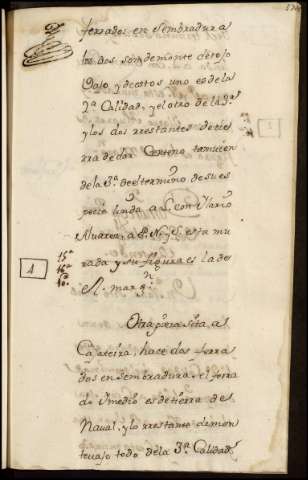 ferrados en sembradura
los dos son demonte detojo
vajo y deestos uno es dela
2ª Calidad, y el otro de la 3ª
y los dos rrestantes de tie
rra de dar Centeno tamvien
dela 3ª de el termino. de su es
pecie linda a L. con Ylario
Alvarez, a P. N. y S. esta mu
rada y su figura es la de
el mar. gn.
Otra pieza sita, al
Cajateira, hace dos ferra
dos en sembradura, el ferra
do y medio es de tierra de
Naval, y lo rrestante de mon
te vajo todo de la 3ª Calidad
15ª
1